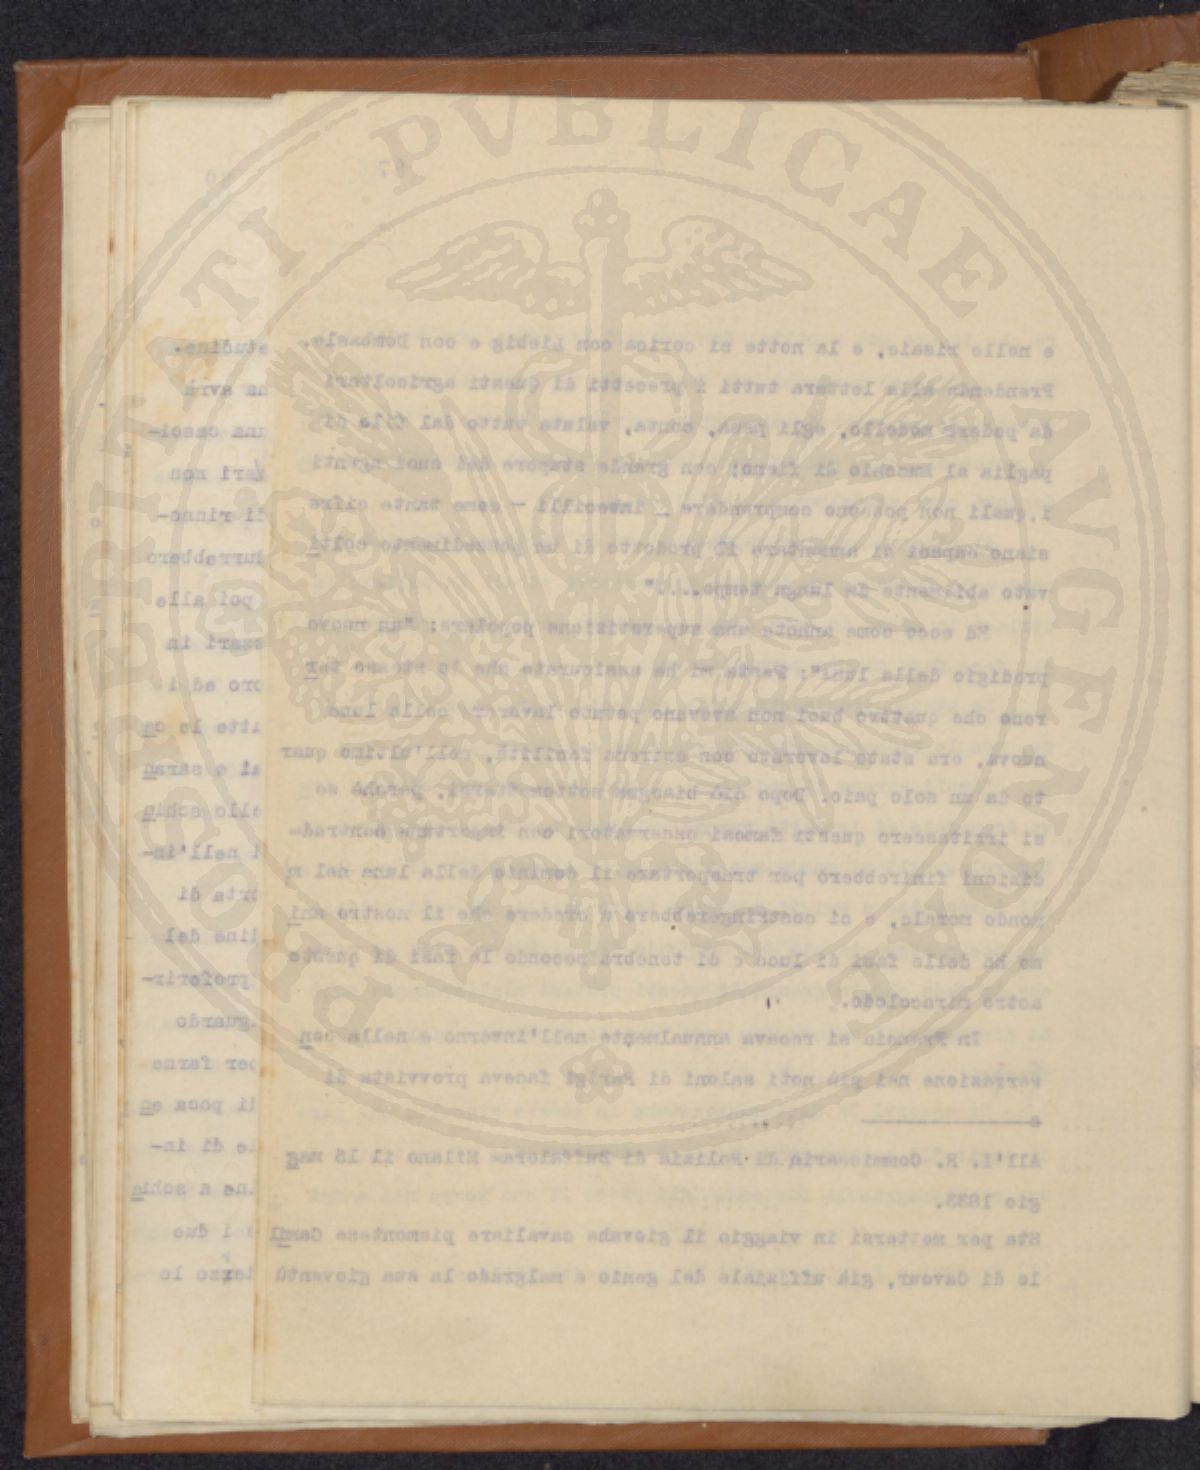 e nelle risaie, e la notte si corica con Liebig e con Dombasle.
Prendendo alla lettera tutti i precetti di questi agricoltori
da podere modello, egli pesa, conta, valuta tutto dal filo di
paglia al mucchio di fieno; con grande stupore dei suoi agenti
i quali non possono comprendere - imbecilli - come tante cifre
siano capaci di aumentare il prodotto di un possedimento colti
vato abilmente da lungo tempo...."
Ed ecco come annota una superstizione popolare: "un nuovo
prodigio della luna": mi ha assicurato che lo stesso ter
reno che quattro buoi non avevano potuto lavorare nella luna
nuova, era stato lavorato con estrema facilità, nell'ultimo quar
to da un solo paio. Dopo ciò bisogna sottomettersi, perchè se
si irritassero questi famosi osservatori con importune contrad-
dizioni finirebbero per trasportare il dominio della luna nel m
mondo morale, e ci costringerebbero a credere che il nostro ani
mo ha delle fasi di luce e di tenebra secondo le fasi di questo
astro miracoloso.
In Francia si recava annualmente nell'inverno e nella con
versazione nei più noti saloni di Parigi faceva provvista di
e
All'I. R. Commissario di Polizia di Buffalora= Milano il 15 mag
gio 1833.
Sta per mettersi in viaggio il giovane cavaliere piemontese Cami
lo di Cavour, già uffiziale del genio e malgrado la sua gioventù
etudine.
na avrà
una casci-
non
di rinno-
durrebbero
poi alle
ssari in
oro ed i
utte le ca
ai e saran
ello schia
i nell'in-
orta di
line del
proferir-
iguardo
per farne
di poca en
le di in-
ine a schia
dei due
terzo lo
PROSPERITATI PVBLICAE AVGENDAE